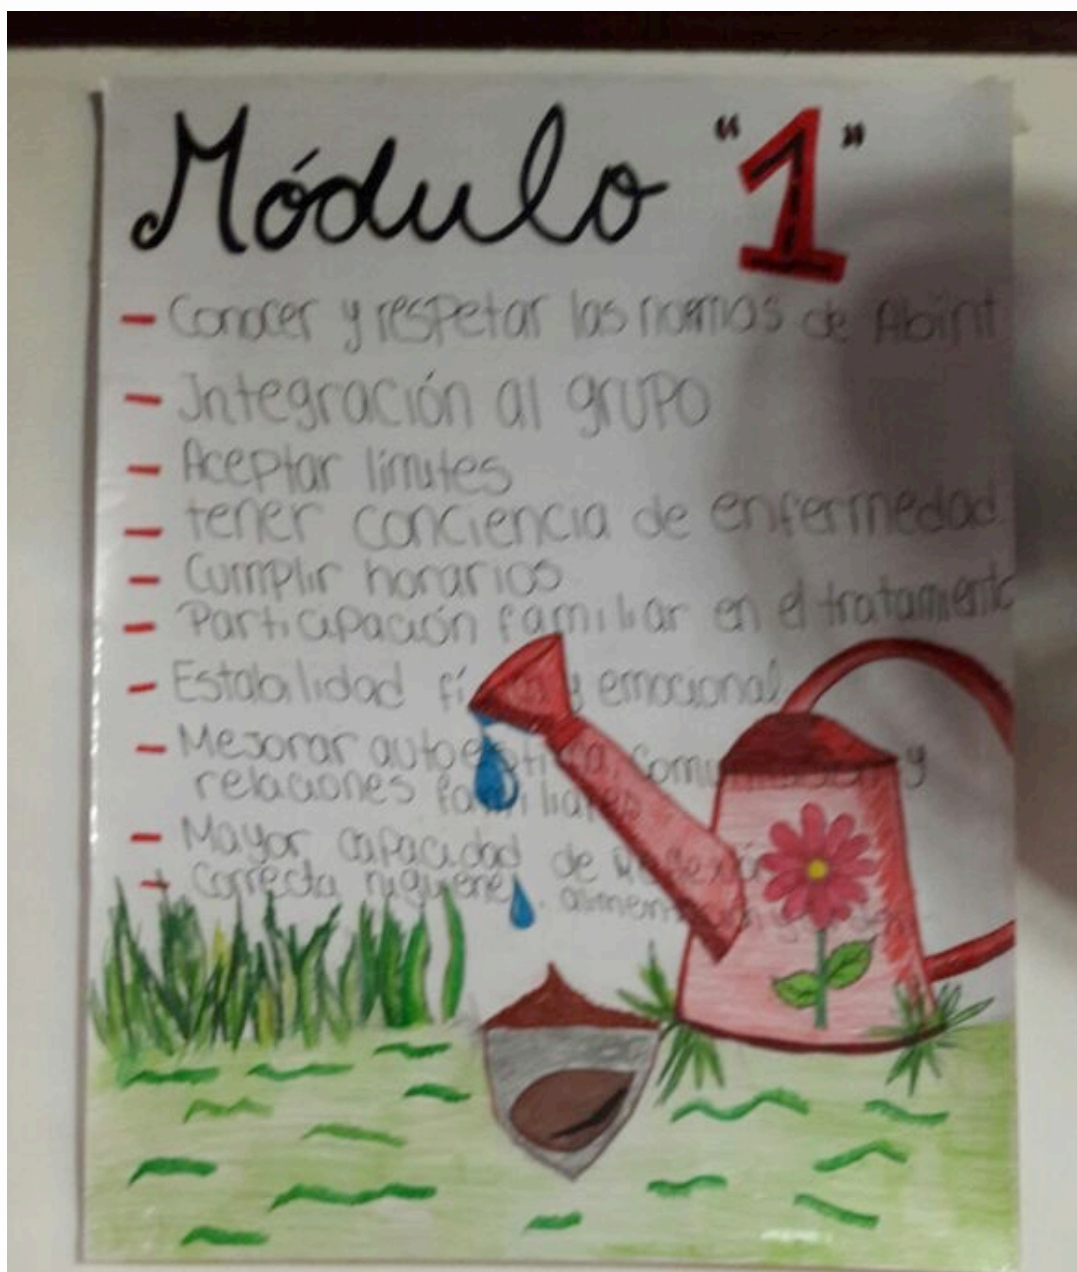 Módulo "1"
- Conocer y respetar las normas de Abint
- Integración al grupo
- Aceptar límites
- tener conciencia de enfermedad
- Cumplir horarios
- Participación familiar en el tratamiento
- Estabilidad física y emocional
- Mejorar autoestima, comunicación y
relaciones familiares
- Mayor capacidad de Reflexión
- Correcta higuiene, alimentación y